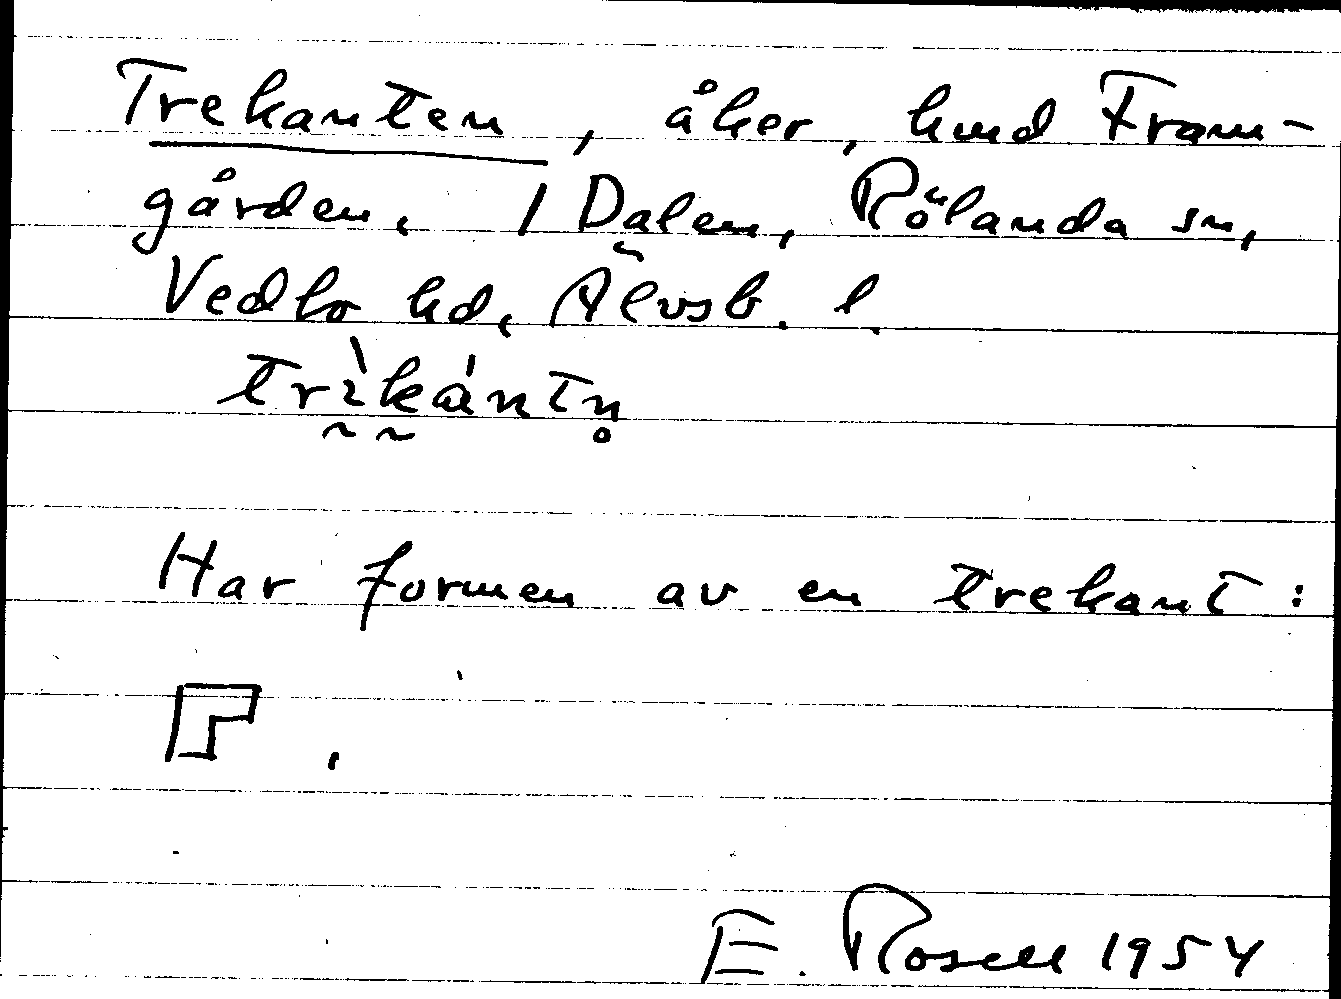 Trekanten, åker, hmd Fram-
gården, 1 Dalen, Rölanda sn,
Vedbo hd, Älvsb. l.
trìkántn̥
Har formen av en trekant:
.
E. Rosell 1954